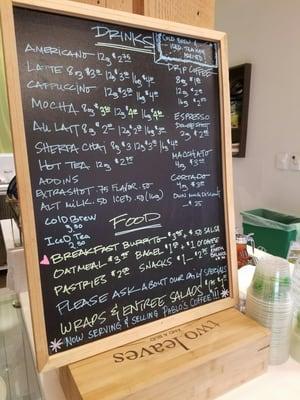 DRINKS
COLD BREW &
ICED TEA
AMERICANO 12g $2.75
LATTE 8oz $3 12g $3.50 16g $4
CAPPUCCINO 8g $3 12g $3.50 16g $4
MOCHA 8g $3.50 12g $4 16g $4.50
AU LAIT 8g $2 12g $2.50 16g $3
SHERPA CHAI 8g $3 12g $3.50 16g $4
HOT TEA 12g $2.25
ADD INS
EXTRA SHOT .75 FLAVOR .50
ALT MILK .50 ICED .50 (16g)
COLD BREW
3.50
ICED TEA
2.50
DRIP COFFEE
8g $1
12g $2
16g
ESPRESSO
2g $2
MACCHIATO
4g $3
CORTADO
4g $3
FOOD
BREAKFAST BURRITO + .50 SALSA
OATMEAL $3 BAGEL + $1 CHEESE
PASTRIES $2 SNACKS $1
SALADS
PLEASE ASK ABOUT OUR DAILY SPECIALS
WRAPS & ENTREE SALADS
NOW SERVING & SELLING PABLO'S COFFEE !!!
two leaves
AND A BUD